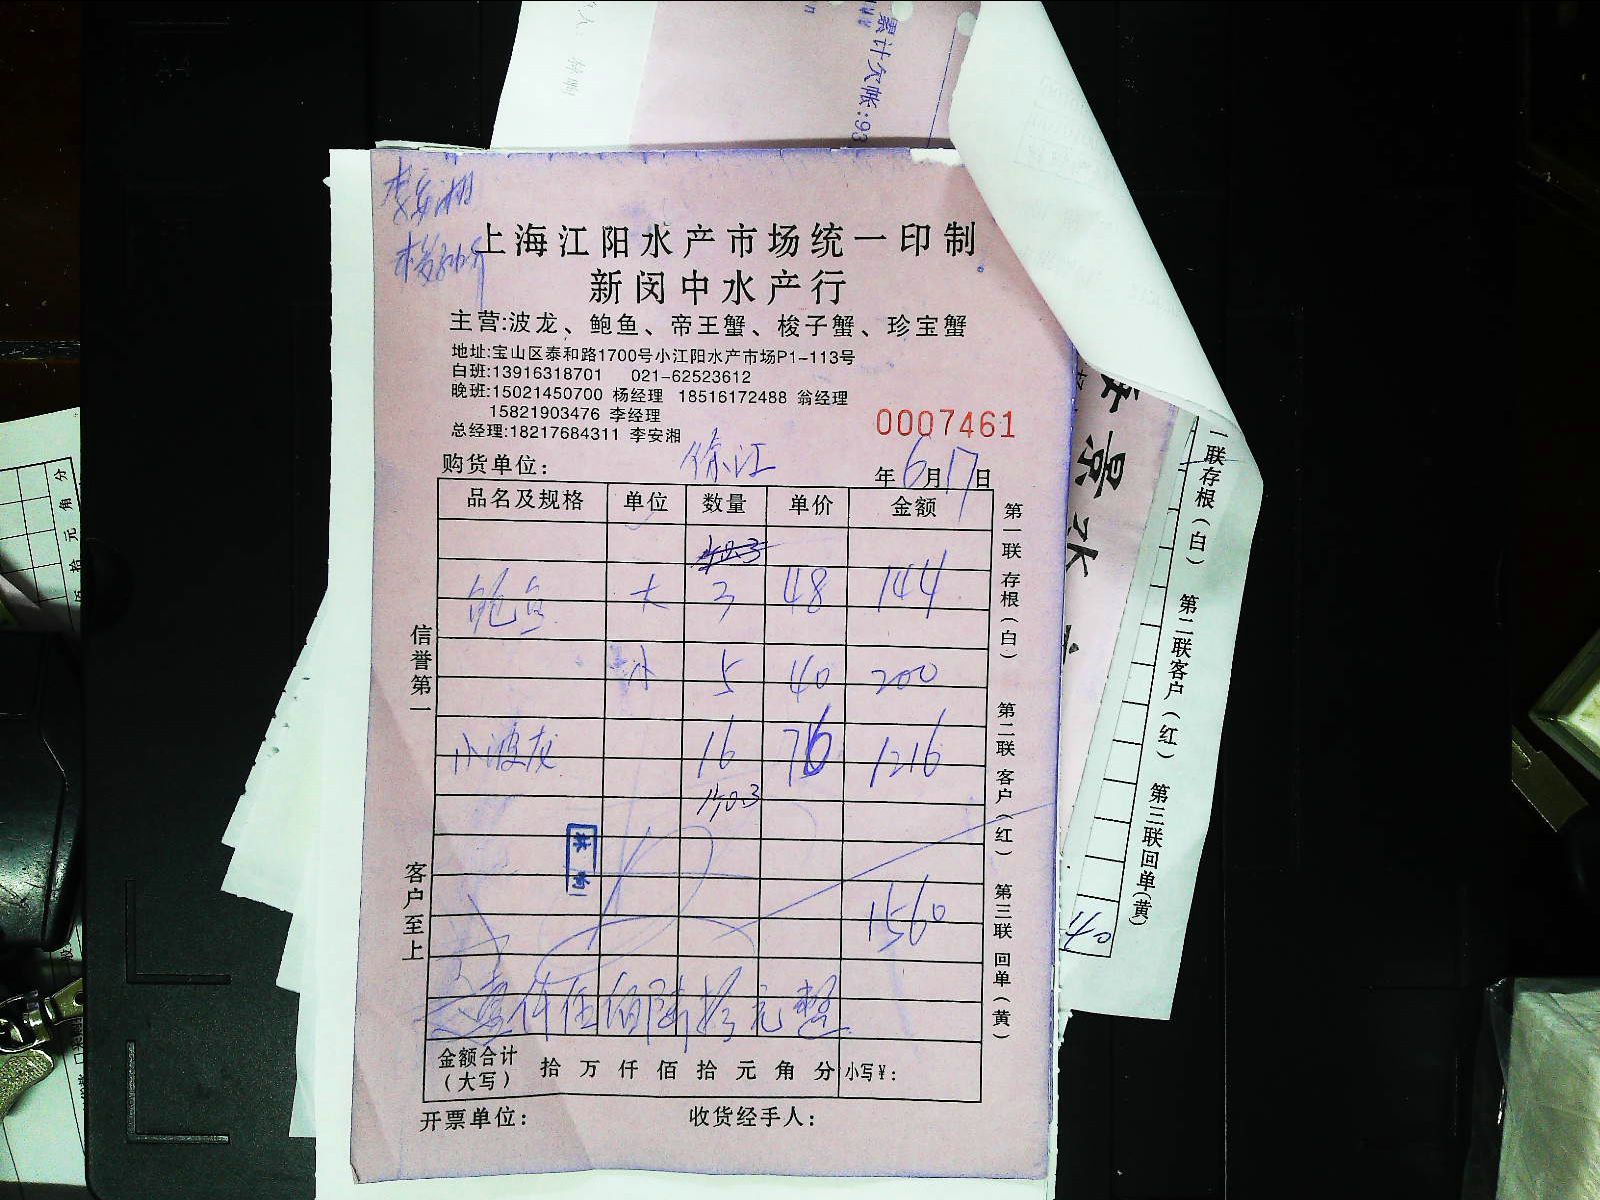 累计欠帐:93
李安湘
上海江阳水产市场统一印制
新闵中水产行
主营:波龙、鲍鱼、帝王蟹、梭子蟹、珍宝蟹
地址:宝山区泰和路1700号小江阳水产市场P1-113号
白班:13916318701 021-62523612
晚班:15021450700 杨经理 18516172488 翁经理
15821903476 李经理
总经理:18217684311 李安湘
0007461
购货单位: 徐江 年6月17日
品名及规格 单位 数量 单价 金额
鲍鱼 大 3 48 144
小 5 40 200
小波龙 16 76 1216
1560
壹仟伍佰陆拾元整
金额合计(大写) 拾 万 仟 佰 拾 元 角 分 小写¥:
开票单位: 收货经手人:
信誉第一
客户至上
第一联 存根(白) 第二联 客户(红) 第三联 回单(黄)
一联存根(白) 第二联客户(红) 第三联回单(黄)